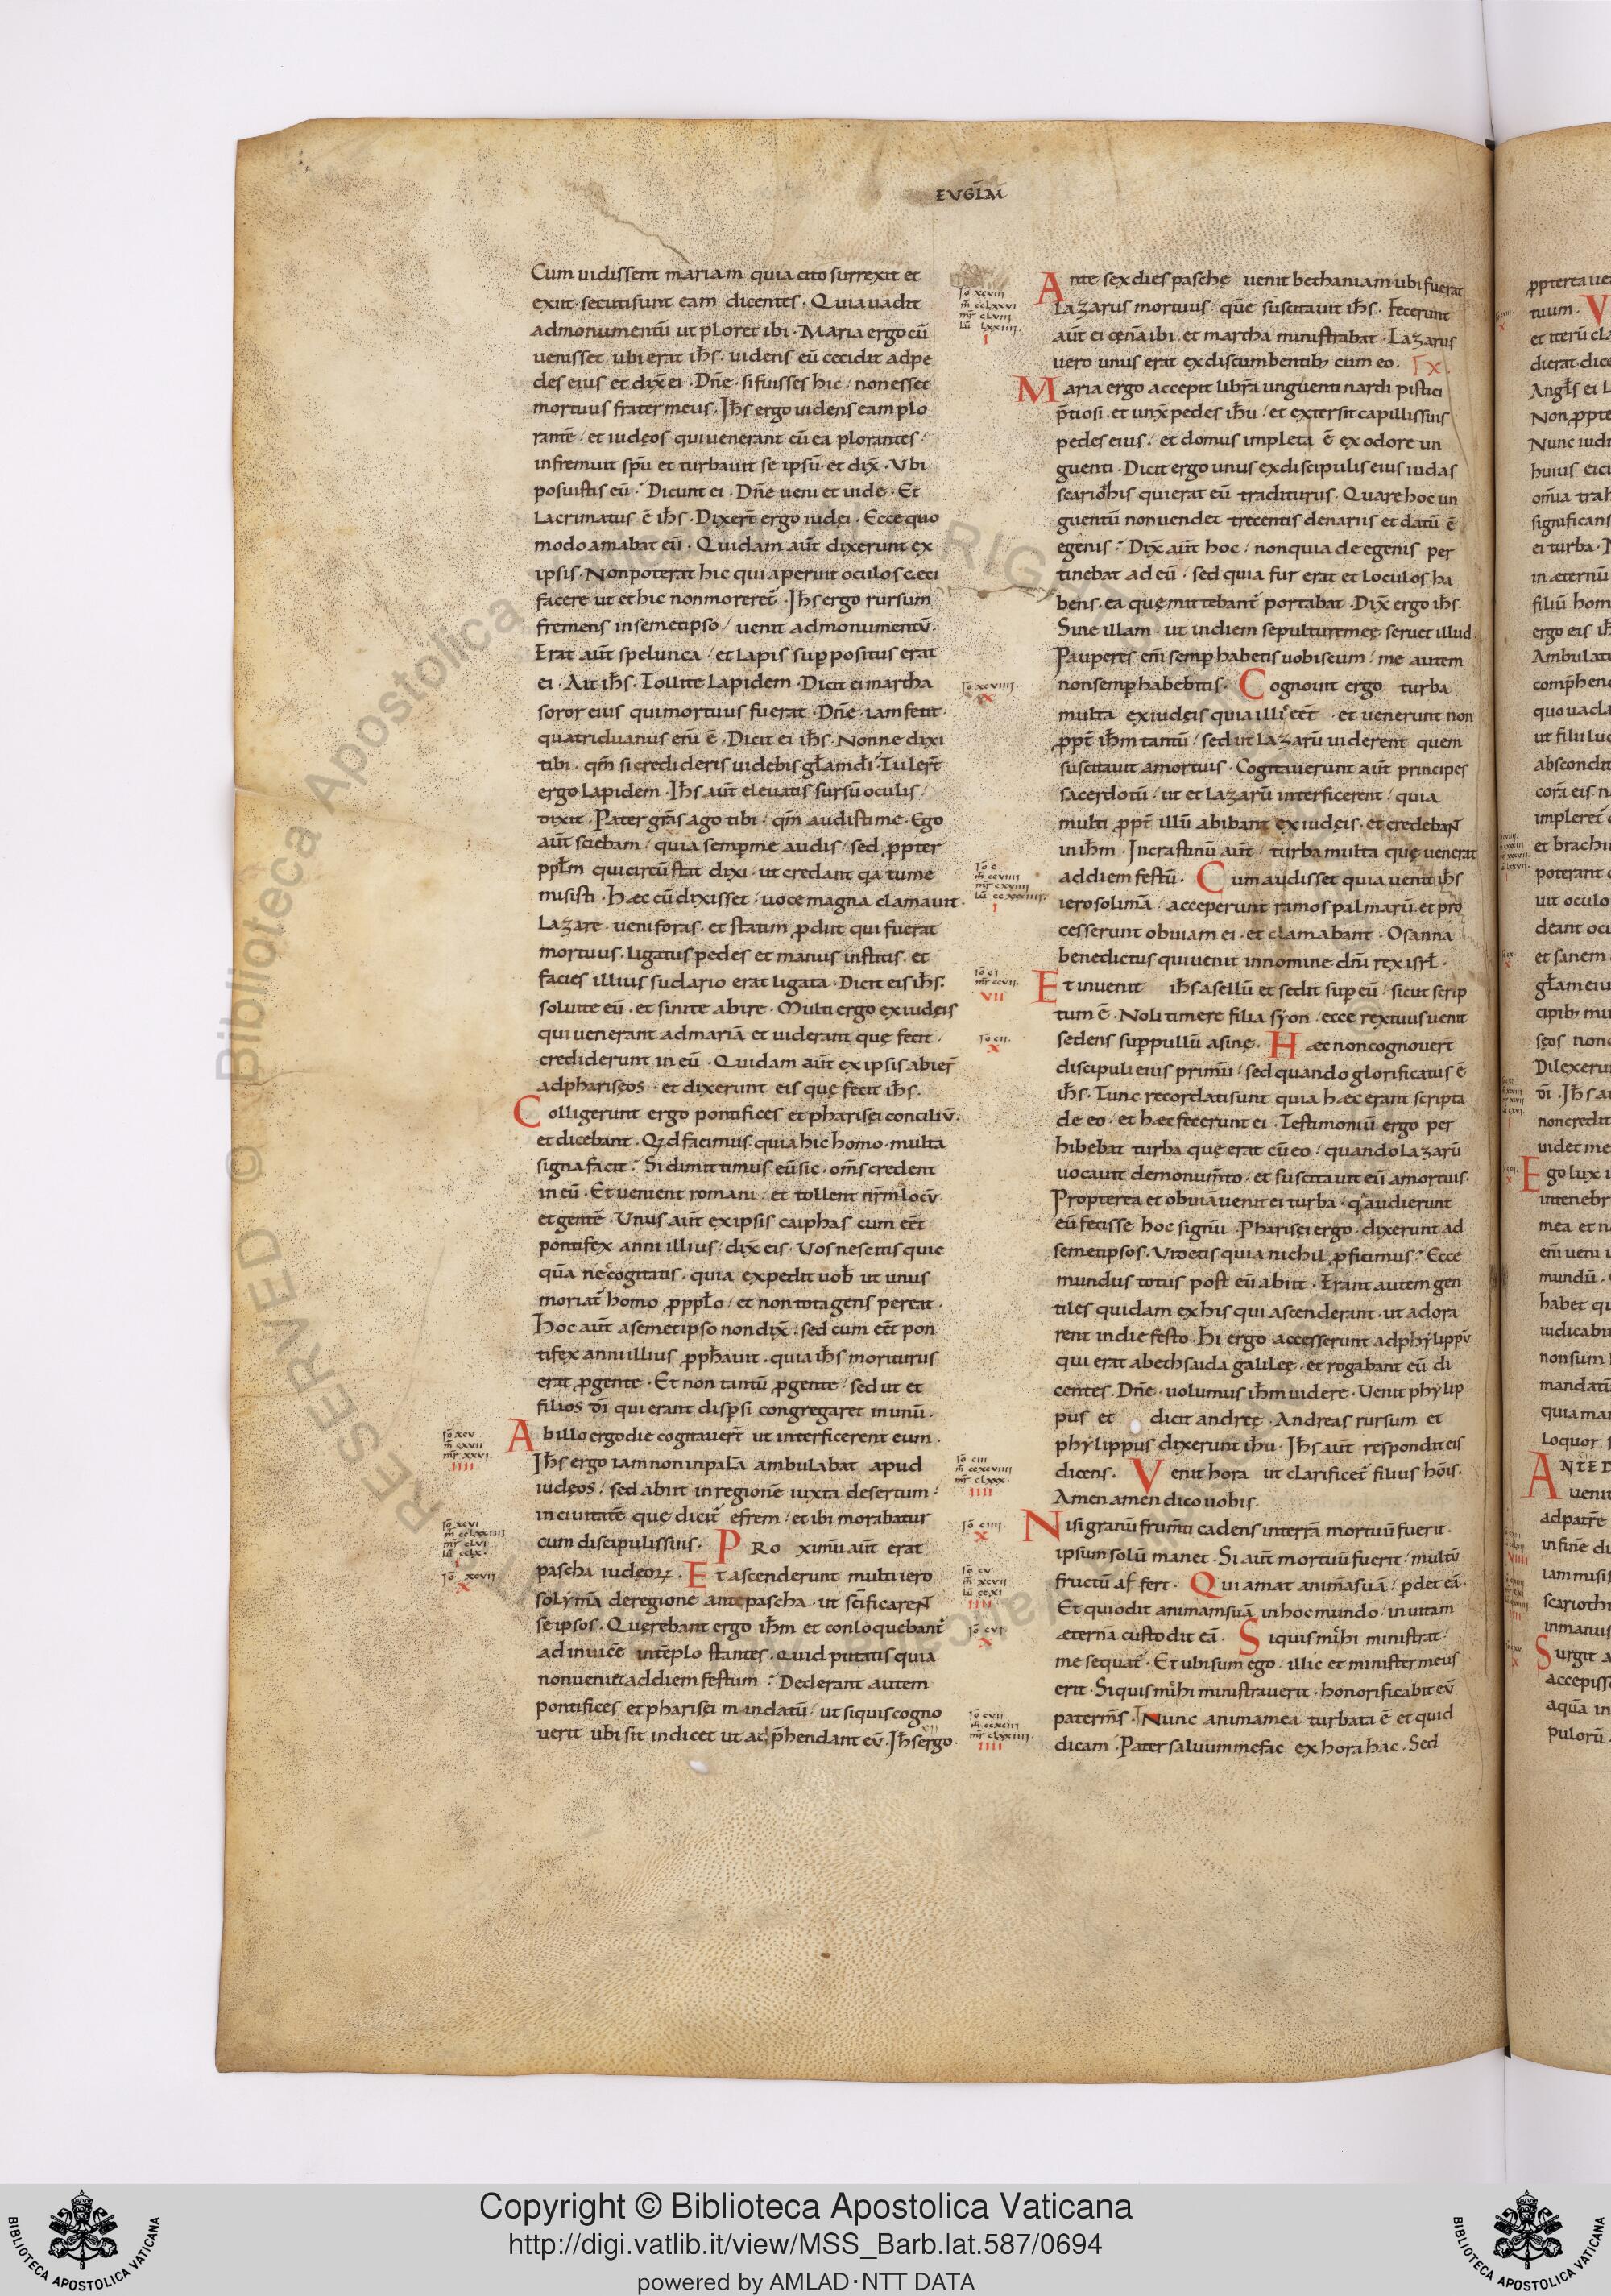 EVGLM̄
Cum uidissent mariam quia cito surrexit et
exiit· secuti sunt eam dicentes· Quia uadit
ad monumentū ut ploret ibi· Maria ergo cū
uenisset ubi erat ih̄s· uidens eū cecidit ad pe
des eius et dix̄ ei· Dn̄e· si fuisses hic· non esset
mortuus frater meus· Ih̄s ergo uidens eam plo
rantē· et iudęos qui uenerant cū ea plorantes·
infremuit spū et turbauit se ipsū· et dix̄· Vbi
posuistis eū? Dicunt ei· Dn̄e ueni et uide· Et
lacrimatus ē ih̄s· Dixer̄t ergo iudęi· Ecce quo
modo amabat eū· Quidam aūt dixerunt ex
ipsis· Non poterat hic qui aperuit oculos cæci
facere ut et hic non moreret̄· Ih̄s ergo rursum
fremens in semetipso· uenit ad monumentū·
Erat aūt spelunca· et lapis suꝑpositus erat
ei· Ait ih̄s· Tollite lapidem· Dicit ei martha
soror eius qui mortuus fuerat· Dn̄e· iam fetet·
quatriduanus eni ē· Dicit ei ih̄s· Nonne dixi
tibi· qm̄ si credideris uidebis gl̄am dī? Tuler̄t
ergo lapidem· Ih̄s aūt eleuatis sursū oculis·
dixit· Pater grās ago tibi· qm̄ audisti me· Ego
aūt sciebam· quia semꝑ me audis· sed ꝓpter
ppl̄m qui circū stat dixi· ut credant qa tu me
misisti· Hæc cū dixisset· uoce magna clamauit·
Lazare ueni foras· et statim ꝓdiit qui fuerat
mortuus· ligatus pedes et manus institis· et
facies illius sudario erat ligata· Dicit eis ih̄s·
soluite eū· et sinite abire· Multi ergo ex iudęis
qui uenerant ad mariā et uiderant quę fecit·
crediderunt in eū· Quidam aūt ex ipsis abier̄
ad pharisęos· et dixerunt eis quę fecit ih̄s·
Colligerunt ergo pontifices et pharisęi conciliū·
et dicebant· Qd facimus· quia hic homo· multa
signa facit? Si dimittimus eū sic· om̄s credent
in eū· Et uenient romani· et tollent nr̄m locū·
et gentē· Vnus aūt ex ipsis caiphas cum ēēt
pontifex anni illius· dix̄ eis· Vos nescitis quic
quā nec cogitatis· quia expedit uob̄ ut unus
moriat̄ homo ꝓ ppl̄o· et non tota gens pereat·
Hoc aūt a semetipso non dix̄· sed cum ēēt pon
tifex anni illius ꝓph̄auit· quia ih̄s moriturus
erat ꝓ gente· Et non tantū ꝓ gente· sed ut et
filios dī qui erant disꝑsi congregaret in unū·
Ab illo ergo die cogitauer̄t ut interficerent eum·
Ih̄s ergo iam non in palā ambulabat apud
iudęos· sed abiit in regionē iuxta desertum·
in ciuitatē quę dicit̄ efrem· et ibi morabatur
cum discipulis suis· PROximū aūt erat
pascha iudęoꝝ· Et ascenderunt multi iero
solymā de regione ante pascha· ut sc̄ificareNT
se ipsos· Quęrebant ergo ih̄m et conloquebant̄
ad inuicē in tēplo stantes· quid putatis quia
non ueniet ad diem festum? Dederant autem
pontifices et pharisęi mandatū· ut si quis cogno
uerit ubi sit indicet ut adp̄hendant eū· Ih̄s ergo
iō xcv
m̄ cxvii
mr̄ xxvi
IIII
iō xcvi
m̄ cclxxiiii
mr̄ clvi
lū cclx
I
iō xcvii
X
iō xcviii
m̄ cclxxvi
mr̄ clviii
lū lxxiiii
I
Ante sex dies paschę uenit bethaniam ubi fuerat
Lazarus mortuus· quē suscitauit ih̄s· Fecerunt
aūt ei cęnā ibi et martha ministrabat· Lazarus
uero unus erat ex discumbentib; cum eo·
Maria ergo accepit librā unguenti nardi pistici
p̄tiosi· et unx̄ pedes ih̄u· et extersit capillis suis
pedes eius· et domus impleta ē ex odore un
guenti· Dicit ergo unus ex discipulis eius iudas
scariothis qui erat eū traditurus· Quare hoc un
guentū non uendet trecentis denariis et datū ē
egenis? Dix̄ aūt hoc· non quia de egenis per
tinebat ad eū· sed quia fur erat et loculos ha
bens· ea quę mittebant̄ portabat· Dix̄ ergo ih̄s·
Sine illam· ut in diem sepulturę meę seruet illud·
Pauperes eni semꝑ habetis uobiscum· me autem
non semꝑ habebitis· Cognouit ergo turba
multa ex iudęis quia illic ēēt· et uenerunt non
ꝓpt̄ ih̄m tantū· sed ut Lazarū uiderent quem
suscitauit a mortuis· Cogitauerunt aūt principes
sacerdotū· ut et Lazarū interficerent· quia
multi ꝓpt̄ illū abibant ex iudęis· et credebaNT
in ih̄m· In crastinū aūt· turba multa quę uenerat
ad diem festū· Cum audisset quia uenit ih̄s
ierosolimā· acceperunt ramos palmarū· et pro
cesserunt obuiam ei· et clamabant· Osanna
benedictus qui uenit in nomine dn̄i rex isrl̄·
Et inuenit ih̄s asellū et sedit suꝑ eū· sicut scrip
tum ē· Noli timere filia syon· ecce rex tuus uenit
sedens suꝑ pullū asinę· Hæc non cognouer̄t
discipuli eius primū· sed quando glorificatus ē
ih̄s· Tunc recordati sunt quia hæc erant scripta
de eo· et hæc fecerunt ei· Testimoniū ergo per
hibebat turba quę erat cū eo· quando Lazarū
uocauit de monum̄to· et suscitauit eū a mortuis·
Propterea et obuiā uenit ei turba· qa audierunt
eū fecisse hoc signū· Pharisęi ergo· dixerunt ad
semetipsos· Videtis quia nichil ꝓficimus? Ecce
mundus totus post eū abiit· Erant autem gen
tiles quidam ex his qui ascenderant· ut adora
rent in die festo· Hi ergo accesserunt ad phylippū
qui erat a bethsaida galileę· et rogabant eū di
centes· Dn̄e· uolumus ih̄m uidere· Venit phylip
pus et dicit andreę· Andreas rursum et
phylippus dixerunt ih̄u· Ih̄s aūt respondit eis
dicens· Venit hora ut clarificet̄ filius hōis·
Amen amen dico uobis·
Nisi granū frum̄ti cadens in terrā mortuū fuerit·
ipsum solū manet· Si aūt mortuū fuerit· multū
fructū af fert· Qui amat animā suā· ꝑdet eā·
Et qui odit animam suā in hoc mundo· in uitam
æternā custodit eā· Si quis mihi ministrat·
me sequat̄· Et ubi sum ego· illic et minister meus
erit· Si quis mihi ministrauerit· honorificabit eū
pater m̄s· Nunc anima mea turbata ē et quid
dicam· Pater saluum me fac ex hora hac· Sed
iō xcviiii
X
iō c
m̄ ccviiii
mr̄ cxviii
I
iō ci
mr̄ ccvii
VII
iō cii
X
iō ciii
m̄ ccxcviii
mr̄ clxxx
IIII
iō ciiii
X
iō cv
m̄ xcvii
lū ccxi
IIII
iō cvi
X
iō cvii
m̄ ccxciii
mr̄ clxxiiii
IIII
Copyright © Biblioteca Apostolica Vaticana
http://digi.vatlib.it/view/MSS_Barb.lat.587/0694
powered by AMLAD·NTT DATA
BIBLIOTECA APOSTOLICA VATICANA
BIBLIOTECA APOSTOLICA VATICANA